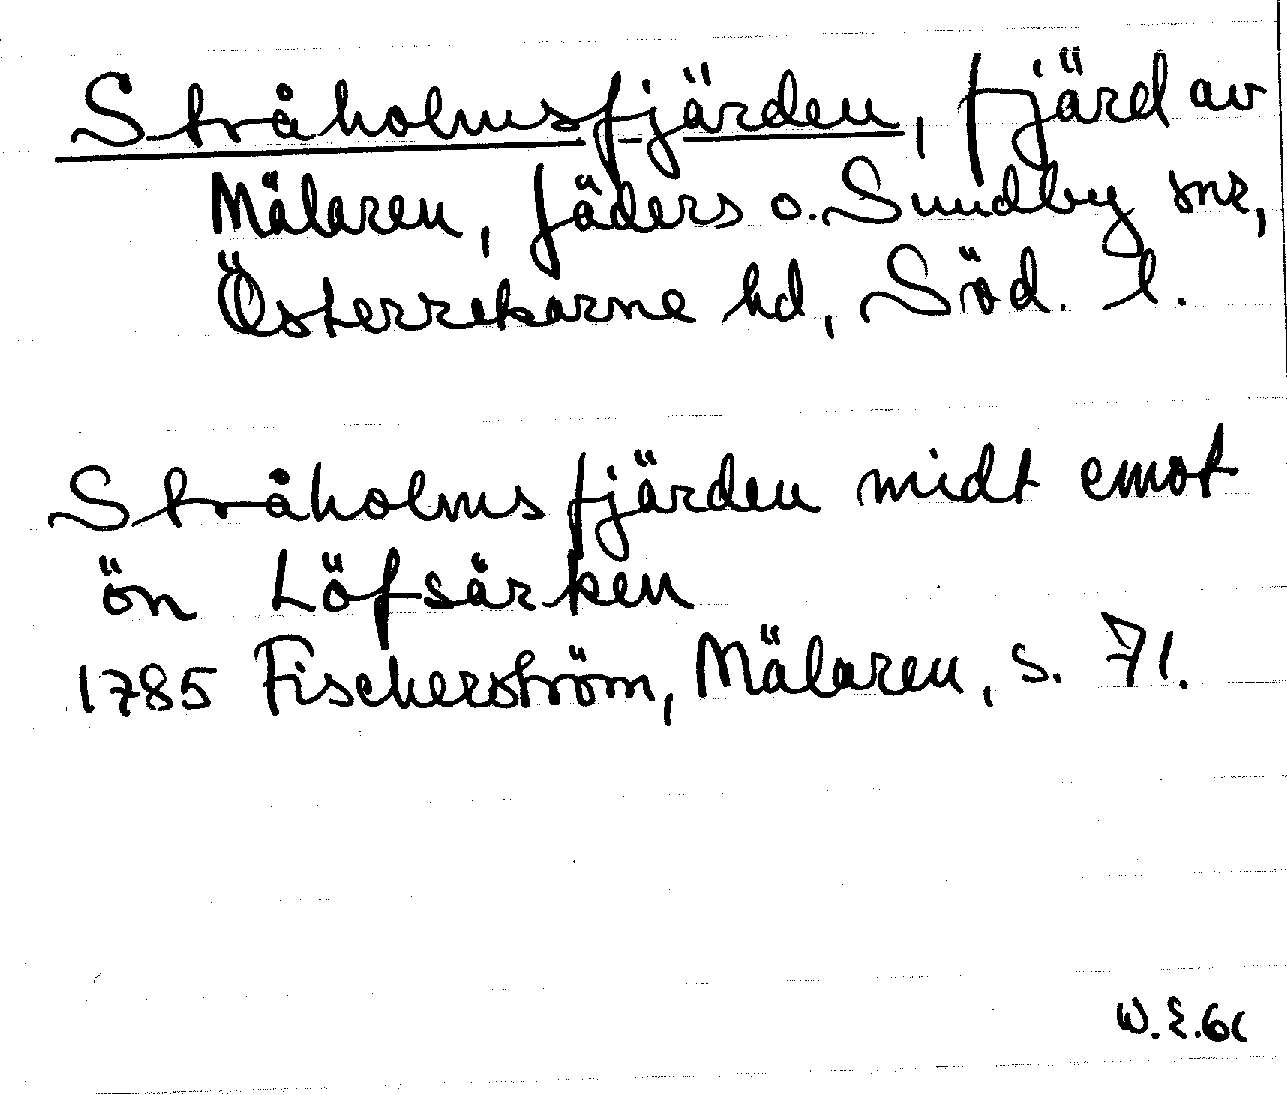 Stråholmsfjärden, fjärd av
Mälaren, Jäders o. Sundby snr,
Österrekarne hd, Söd. l.
Stråholms fjärden midt emot
ön Löfsärken
1785 Fischerström, Mälaren, s. 71.
W.E.61